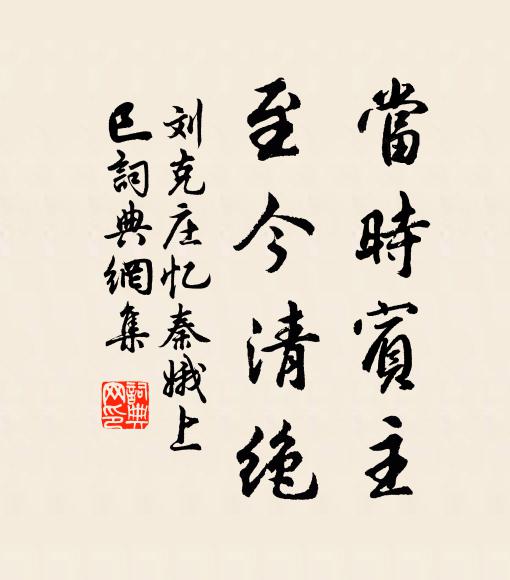 當時賓主
至今清絶
刘克庄忆秦娥上
巳詞典網集
詞典網印